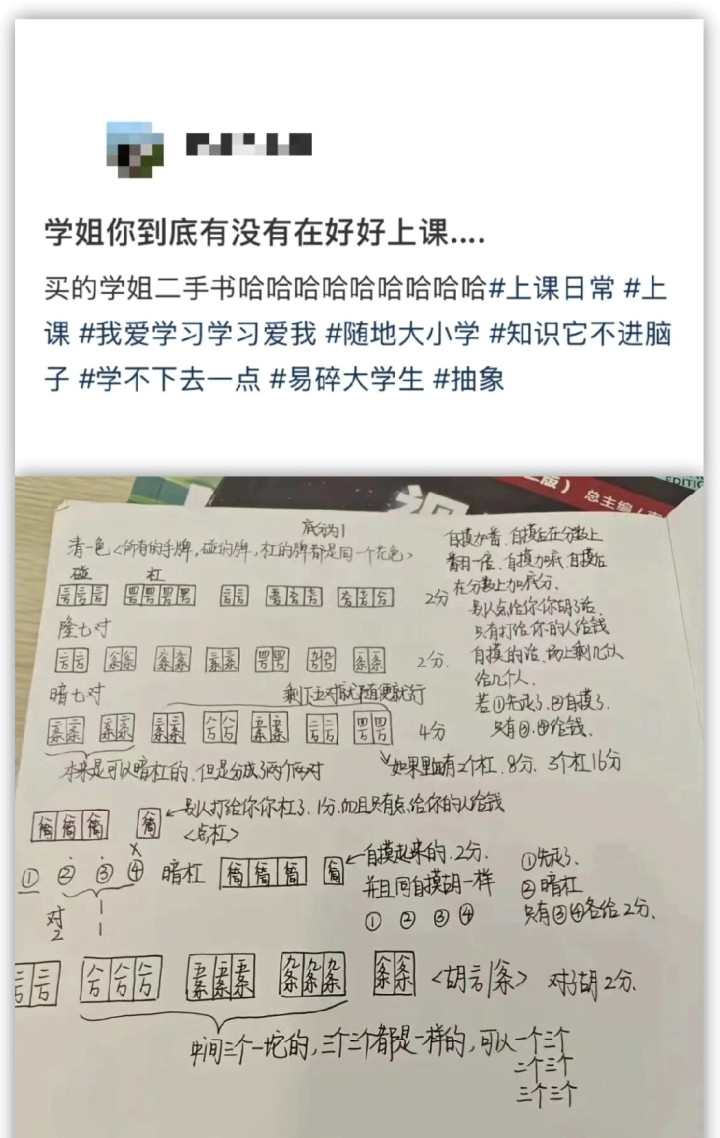 学姐你到底有没有在好好上课....
买的学姐二手书哈哈哈哈哈哈哈哈哈#上课日常 #上
课 #我爱学习学习爱我 #随地大小学 #知识它不进脑
子 #学不下去一点 #易碎大学生 #抽象
版）
总主编
EDITIO
底分为1
清一色<所有的手牌,碰的牌,杠的牌都是同一个花色>
碰 杠
2分
隆七对
2分.
暗七对
剩下五对就随便就行
4分
本来是可以暗杠的,但是分成了两个两对
如果里面有2个杠.8分. 3个杠16分
自摸加番.自摸后在分数上
番用一倍.自摸加底.自摸后
在分数上加底分.
别人点给你你胡了话.
只有打给你的人给钱
自摸的话.场上剩几个人
给几个人.
若①先死了.②自摸了.
只有③.④给钱.
筒 筒 筒 筒
别人打给你你杠了.1分,而且只有点给你的人给钱
<点杠>
① ② ③ ④
对 1
2 1
暗杠
筒 筒 筒 筒
自摸起来的.2分.
并且同自摸胡一样
① ② ③ ④
①先死了.
②暗杠
只有③④各给2分.
三万 三万 八万 八万 八万 五条 五条 五条 九条 九条 九条 八条 八条
对对胡2分.
中间三个一坨的,三个三个都是一样的,可以一个三个
二个三个
三个三个